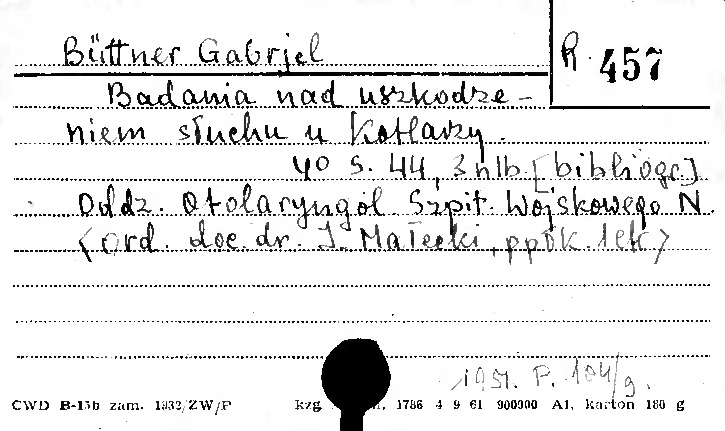 Büttner Gabrjel
R. 457
Badania nad uszkodze-
niem słuchu u kotlarzy.
4° s. 44, 3 nlb. [bibliogr.]
Oddz. Otolaryngol Szpit. Wojskowego N.
<Ord. doc. dr. J. Małecki, ppłk. lek>
1951. P. 104/g.
CWD B-15b zam. 1932/ZW/P kzg 1786 4 9 61 900000 A1, karton 180 g